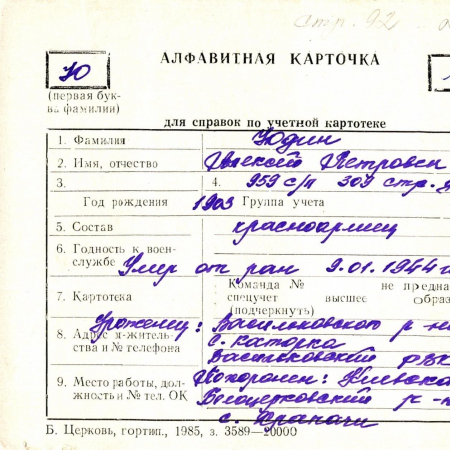 стр. 92
АЛФАВИТНАЯ КАРТОЧКА
Ю
(первая бук-
ва фамилии)
для справок по учетной картотеке
1. Фамилия Юдин
2. Имя, отчество Алексей Петрович
3. 4. 959 с/п 309 стр. д
Год рождения 1903 Группа учета
5. Состав красноармеец
6. Годность к воен-
службе Умер от ран 9.01.1944 г
Команда № не предна
7. Картотека спецучет высшее образ
(подчеркнуть)
Уроженец: Васильковского р-на
8. Адрес м-житель-
ства и № телефона
с. Каторка
Васильковский РВК
9. Место работы, дол-
жность и № тел. ОК
Похоронен: Киевская
Белоцерковский р-н
с. Драпачи
Б. Церковь, гортип., 1985, з. 3589—20000